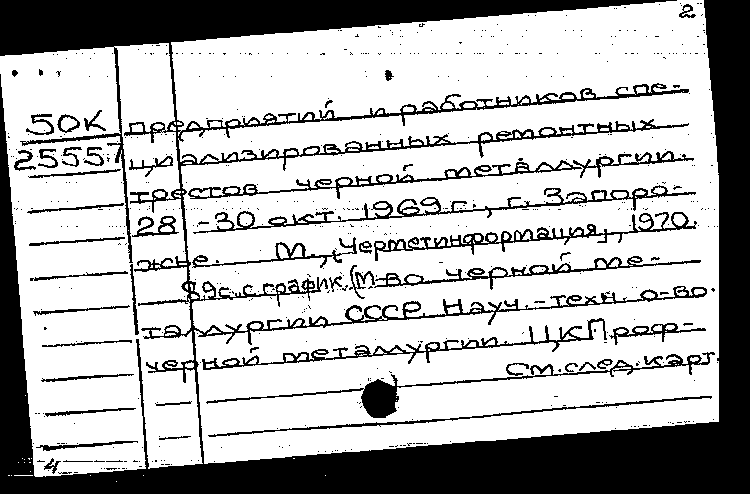 2
50К предприятий и работников спе-
25557 циализированных ремонтных
трестов черной металлургии.
28-30 окт. 1969 г., г. Запоро-
жье. М., „Черметинформация", 1970.
89с. с график. (М-во черной ме-
таллургии СССР. Науч.-техн. о-во.
черной металлургии. ЦКПроф-
См. след. карт.
4